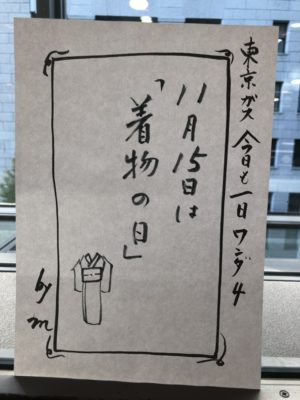 東京ガス 今日も一日ワンダ4
11月15日は
「着物の日」
by m